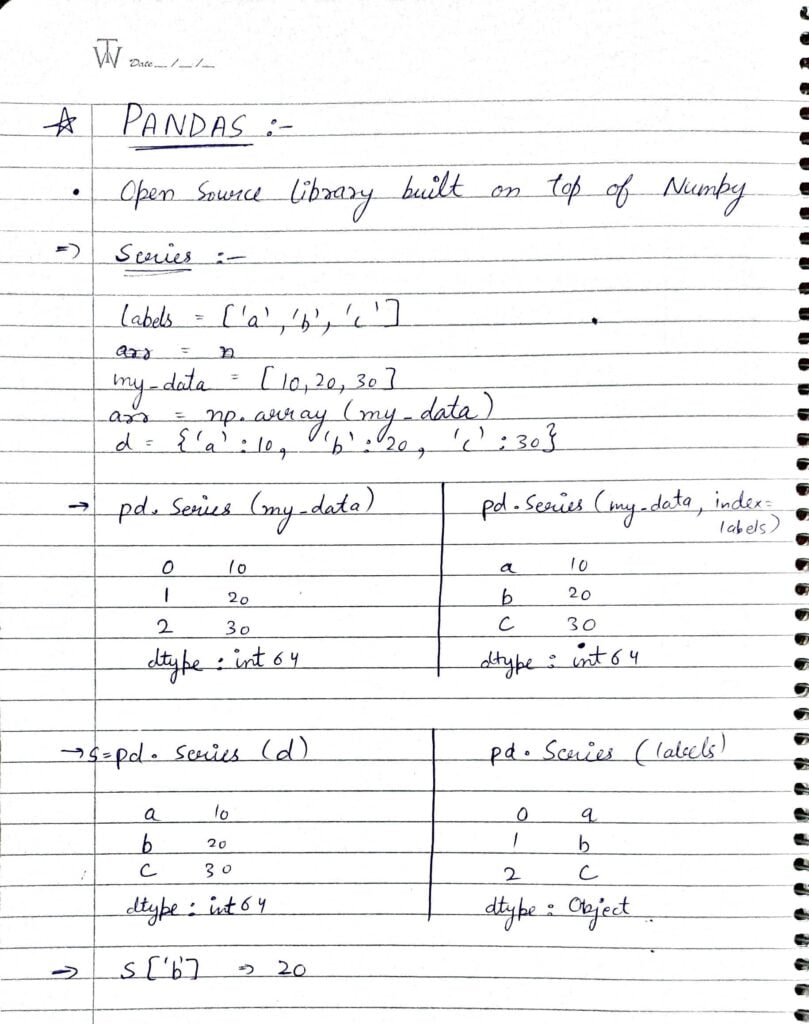 Date__/__/__
☆ PANDAS :-
• Open Source library built on top of Numpy
=> Series :-
labels = ['a', 'b', 'c']
arr = n
my_data = [10, 20, 30]
arr = np.array (my_data)
d = {'a' : 10, 'b' : 20, 'c' : 30}
→ pd. Series (my_data)
0 10
1 20
2 30
dtype : int 64
pd. Series (my_data, index=
labels)
a 10
b 20
c 30
dtype : int 64
→ s=pd. Series (d)
a 10
b 20
c 30
dtype : int 64
pd. Series (labels)
0 a
1 b
2 c
dtype : Object
→ s ['b'] => 20